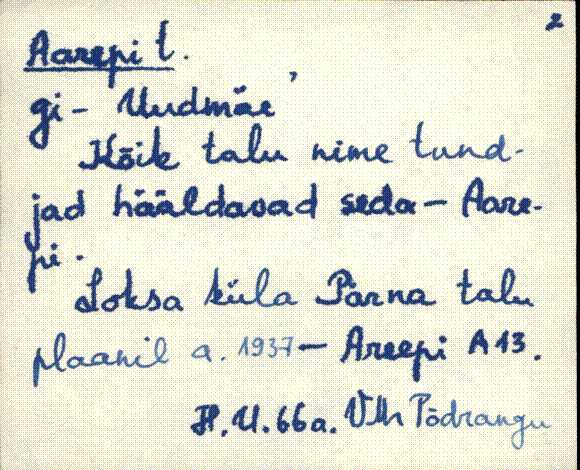 2
Aarepi t.
gi - Uudmäe'
Kõik talu nime tund-
jad hääldavad seda - Aare-
pi.
Loksa küla Pärna talu
plaanil a. 1937 - Areepi A 13.
H. U. 66 a. VMr Põdrangu